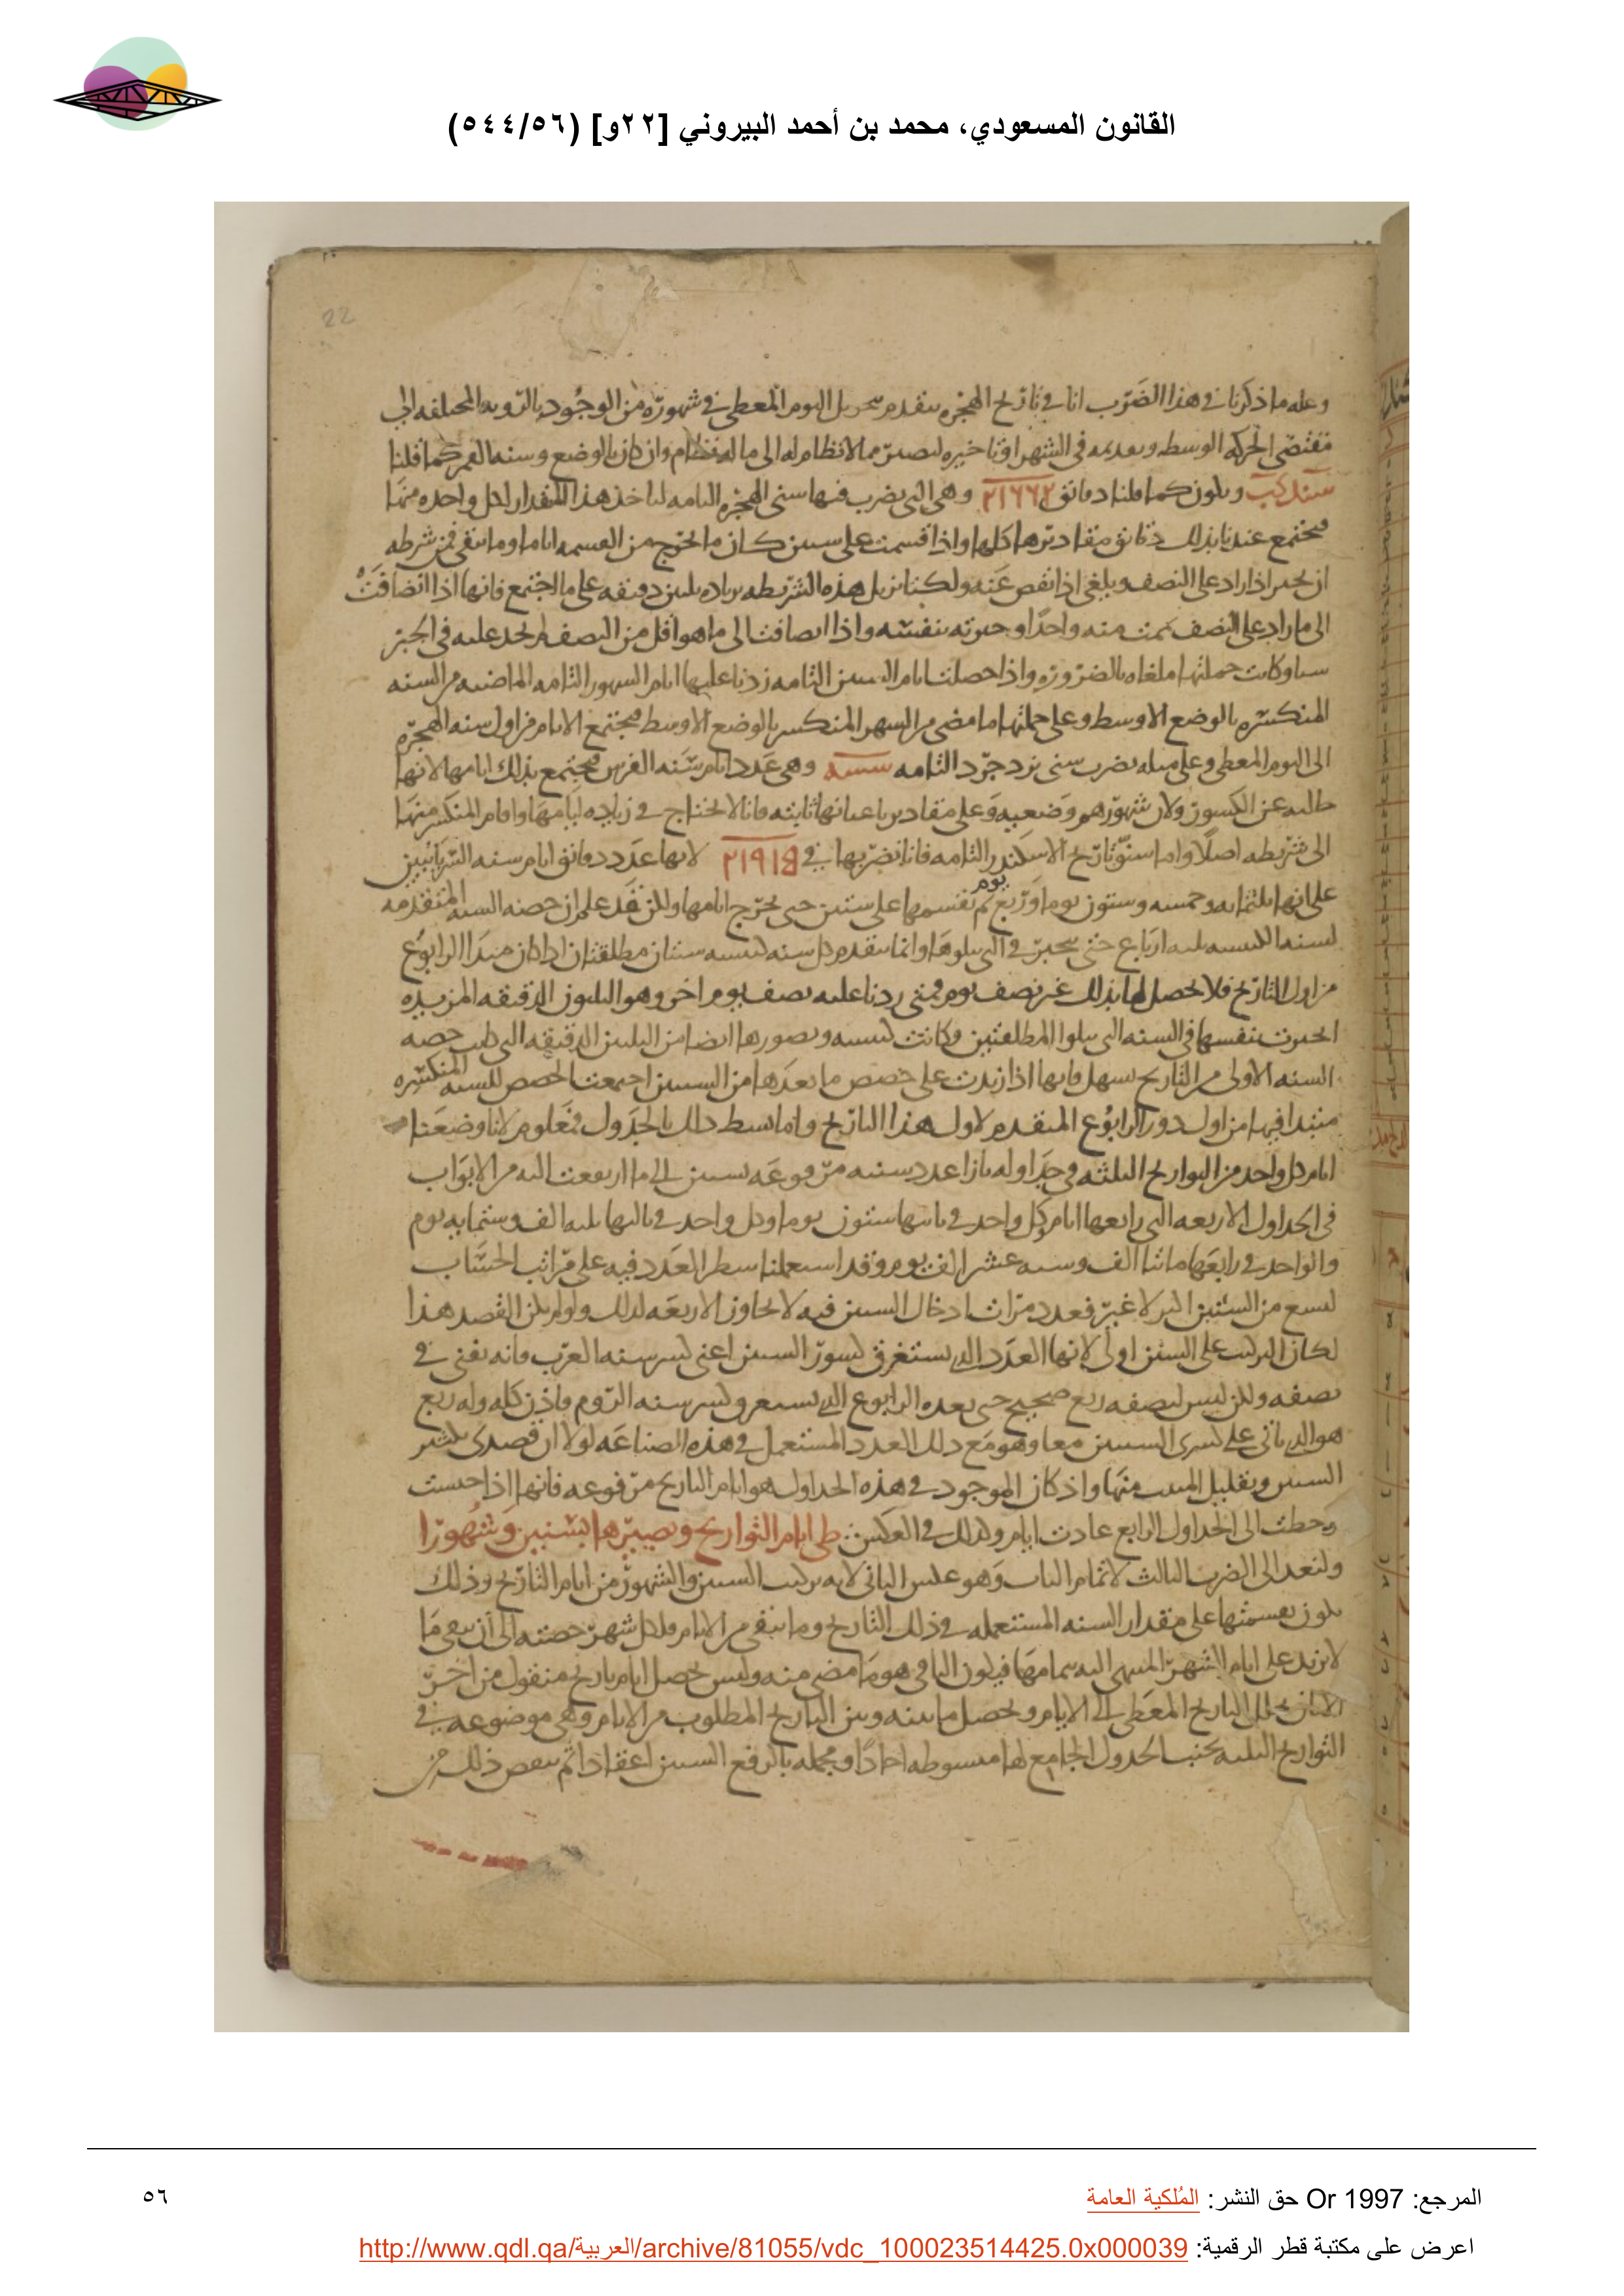 القانون المسعودي، محمد بن أحمد البيروني [٢٢و] (٥٤٤/٥٦)
22
وعله ما ذكرنا في هذا الضرب انا في تاريخ الهجره نتقدم بتحويل اليوم المعطى في شهوره من الوجود بالرويه المختلفه الى
مقتضى الحركه الوسطه وبعدىمه في الشهر او تاخيره ليصير مما لا نظام له الى ما له نظام وان كان بالوضع وسنه القمر كما قلنا
شند كب ويكون كما قلنا دقائق ٢١٢٦٢ وهي التي يضرب فيها سني الهجره التامه لناخذ هذا المقدار لكل واحده منها
فيجتمع عندنا بذلك دقائق مقاديرها كلها واذا قسمت على ستين كان ما يخرج من القسمه اياما وما يبقى فمن شرطه
ان يجبر اذا زاد على النصف ويلغى اذا نقص عنه ولكنا نزيل هذه الشريطه بزياده ثلثين دقيقه على ما اجتمع فانها اذا انضافت
الى ما زاد على النصف تممت منه واحدا وجبرته بنفسه واذا انضافت الى ما هو اقل من النصف لم يحد عليه في الجبر
شيا وكانت جملتها ملغاه بالضروره واذا حصلت ايام السنين التامه زدنا عليها ايام الشهور التامه الماضيه من السنه
المنكسره بالوضع الاوسط وعلى جملتها ما مضى من الشهر المنكسر بالوضع الاوسط فيجتمع الايام من اول سنه الهجره
الى اليوم المعطى وعلى مثله نضرب سني يزدجرد التامه شسه وهي عدد ايام سنه الفرس فيجتمع بذلك ايامها لانها
خاليه عن الكسور ولان شهورهم وضعيه وعلى مقادير باعيانها ثابته فانا لا نحتاج في زياده ايامها وايام المنكسر منها
الى شريطه اصلا واما سنو تاريخ الاسكندر التامه فانا نضربها في ٢١٩١٥ لانها عدد دقائق ايام سنه السريانيين
على انها ثلثمايه وخمسه وستون يوما وربع يوم ثم نقسمها على ستين حتى يخرج ايامها ولكن نقد علم ان حصه السنه المتقدمه
لسنه الكبيسه ثلثه ارباع حتى ينجبر في التي يتلوها وانما يتقدم كل سنه كبيسه سنتان مطلقتان اذا كان مبدا الرابوع
من اول التاريخ فلا يحصل لها بذلك غير نصف يوم فمتى زدنا عليه نصف يوم اخر وهو الثلثون الدقيقه المزيده
انجبرت بنفسها في السنه التي يتلوا المطلقتين وكانت كبيسه وتصورها ايضا من الثلثين الدقيقه التي هي حصه
السنه الاولى من التاريخ يسهل فانها اذا زيدت على حصص ما بعدها من السنين اجتمعت الحصص للسنه المنكسره
مبتدا فيها من اول دور الرابوع المتقدم لاول هذا التاريخ واما بسط ذلك بالجدول فمعلوم لانا وضعنا
ايام كل واحد من التواريخ الثلثه في جداوله بازا عدد سنيه مرفوعه بستين الى ما ارتفعت اليه من الابواب
في الجداول الاربعه التي رابعها ايام كل واحد في ثالثها ستون يوما وكل واحد في ثانيها ثلثه الف وستمايه يوم
والواحد في رابعها مائتا الف وسته عشر الف يوم وقد استعملنا سطر العدد فيه على مراتب الحساب
لسع من السنين اكثر لا غير فعدد مرات ادخال السنين فيه لا يجاوز الاربعه لذلك ولو لم يكن القصد هذا
لكان التركيب على الستين اولى لانها العدد الذي يستغرق كسور السنين اعني كسر سنه العرب فانه يفنى في
نصفه ولكن ليس لنصفه ربع صحيح حتى يعده الرابوع الذي يستغرق كسر سنه الروم فاذن كله وله ربع
هو الذي ياتي على كسرى السنين معا وهو مع ذلك العدد المستعمل في هذه الصناعه لولا ان قصدي تكثير
السنين وتقليل المبيت منها واذ كان الموجود في هذه الجداول هو ايام التاريخ مرفوعه فانها اذا جنست
وحطت الى الجداول الرابع عادت ايام وكذلك في العكس طي ايام التواريخ وتصييرها سنين وشهورا
ولنعد الى الضرب الثالث لاتمام الباب وهو عكس الثاني لانه تركيب السنين والشهور من ايام التاريخ وذلك
يكون بقسمتها على مقدار السنه المستعمله في ذلك التاريخ وما يبقى من الايام فلكل شهر حصته الى ان يبقى ما
لا يزيد على ايام الشهر المنتهى اليه بتمامها فيكون الباقي هو ما مضى منه وليس يحصل ايام تاريخ منقول من اخر
الا بان يحلل التاريخ المعطى الى الايام ويحصل ما بينه وبين التاريخ المطلوب من الايام وهي موضوعه في
التواريخ الثلثه بجنب الجدول الجامع لها مبسوطه احادا ومجمله بالرفع الستين اعقادا ثم ينقص ذلك من
المرجع: Or 1997 حق النشر: المُلكية العامة
٥٦
اعرض على مكتبة قطر الرقمية: http://www.qdl.qa/العربية/archive/81055/vdc_100023514425.0x000039